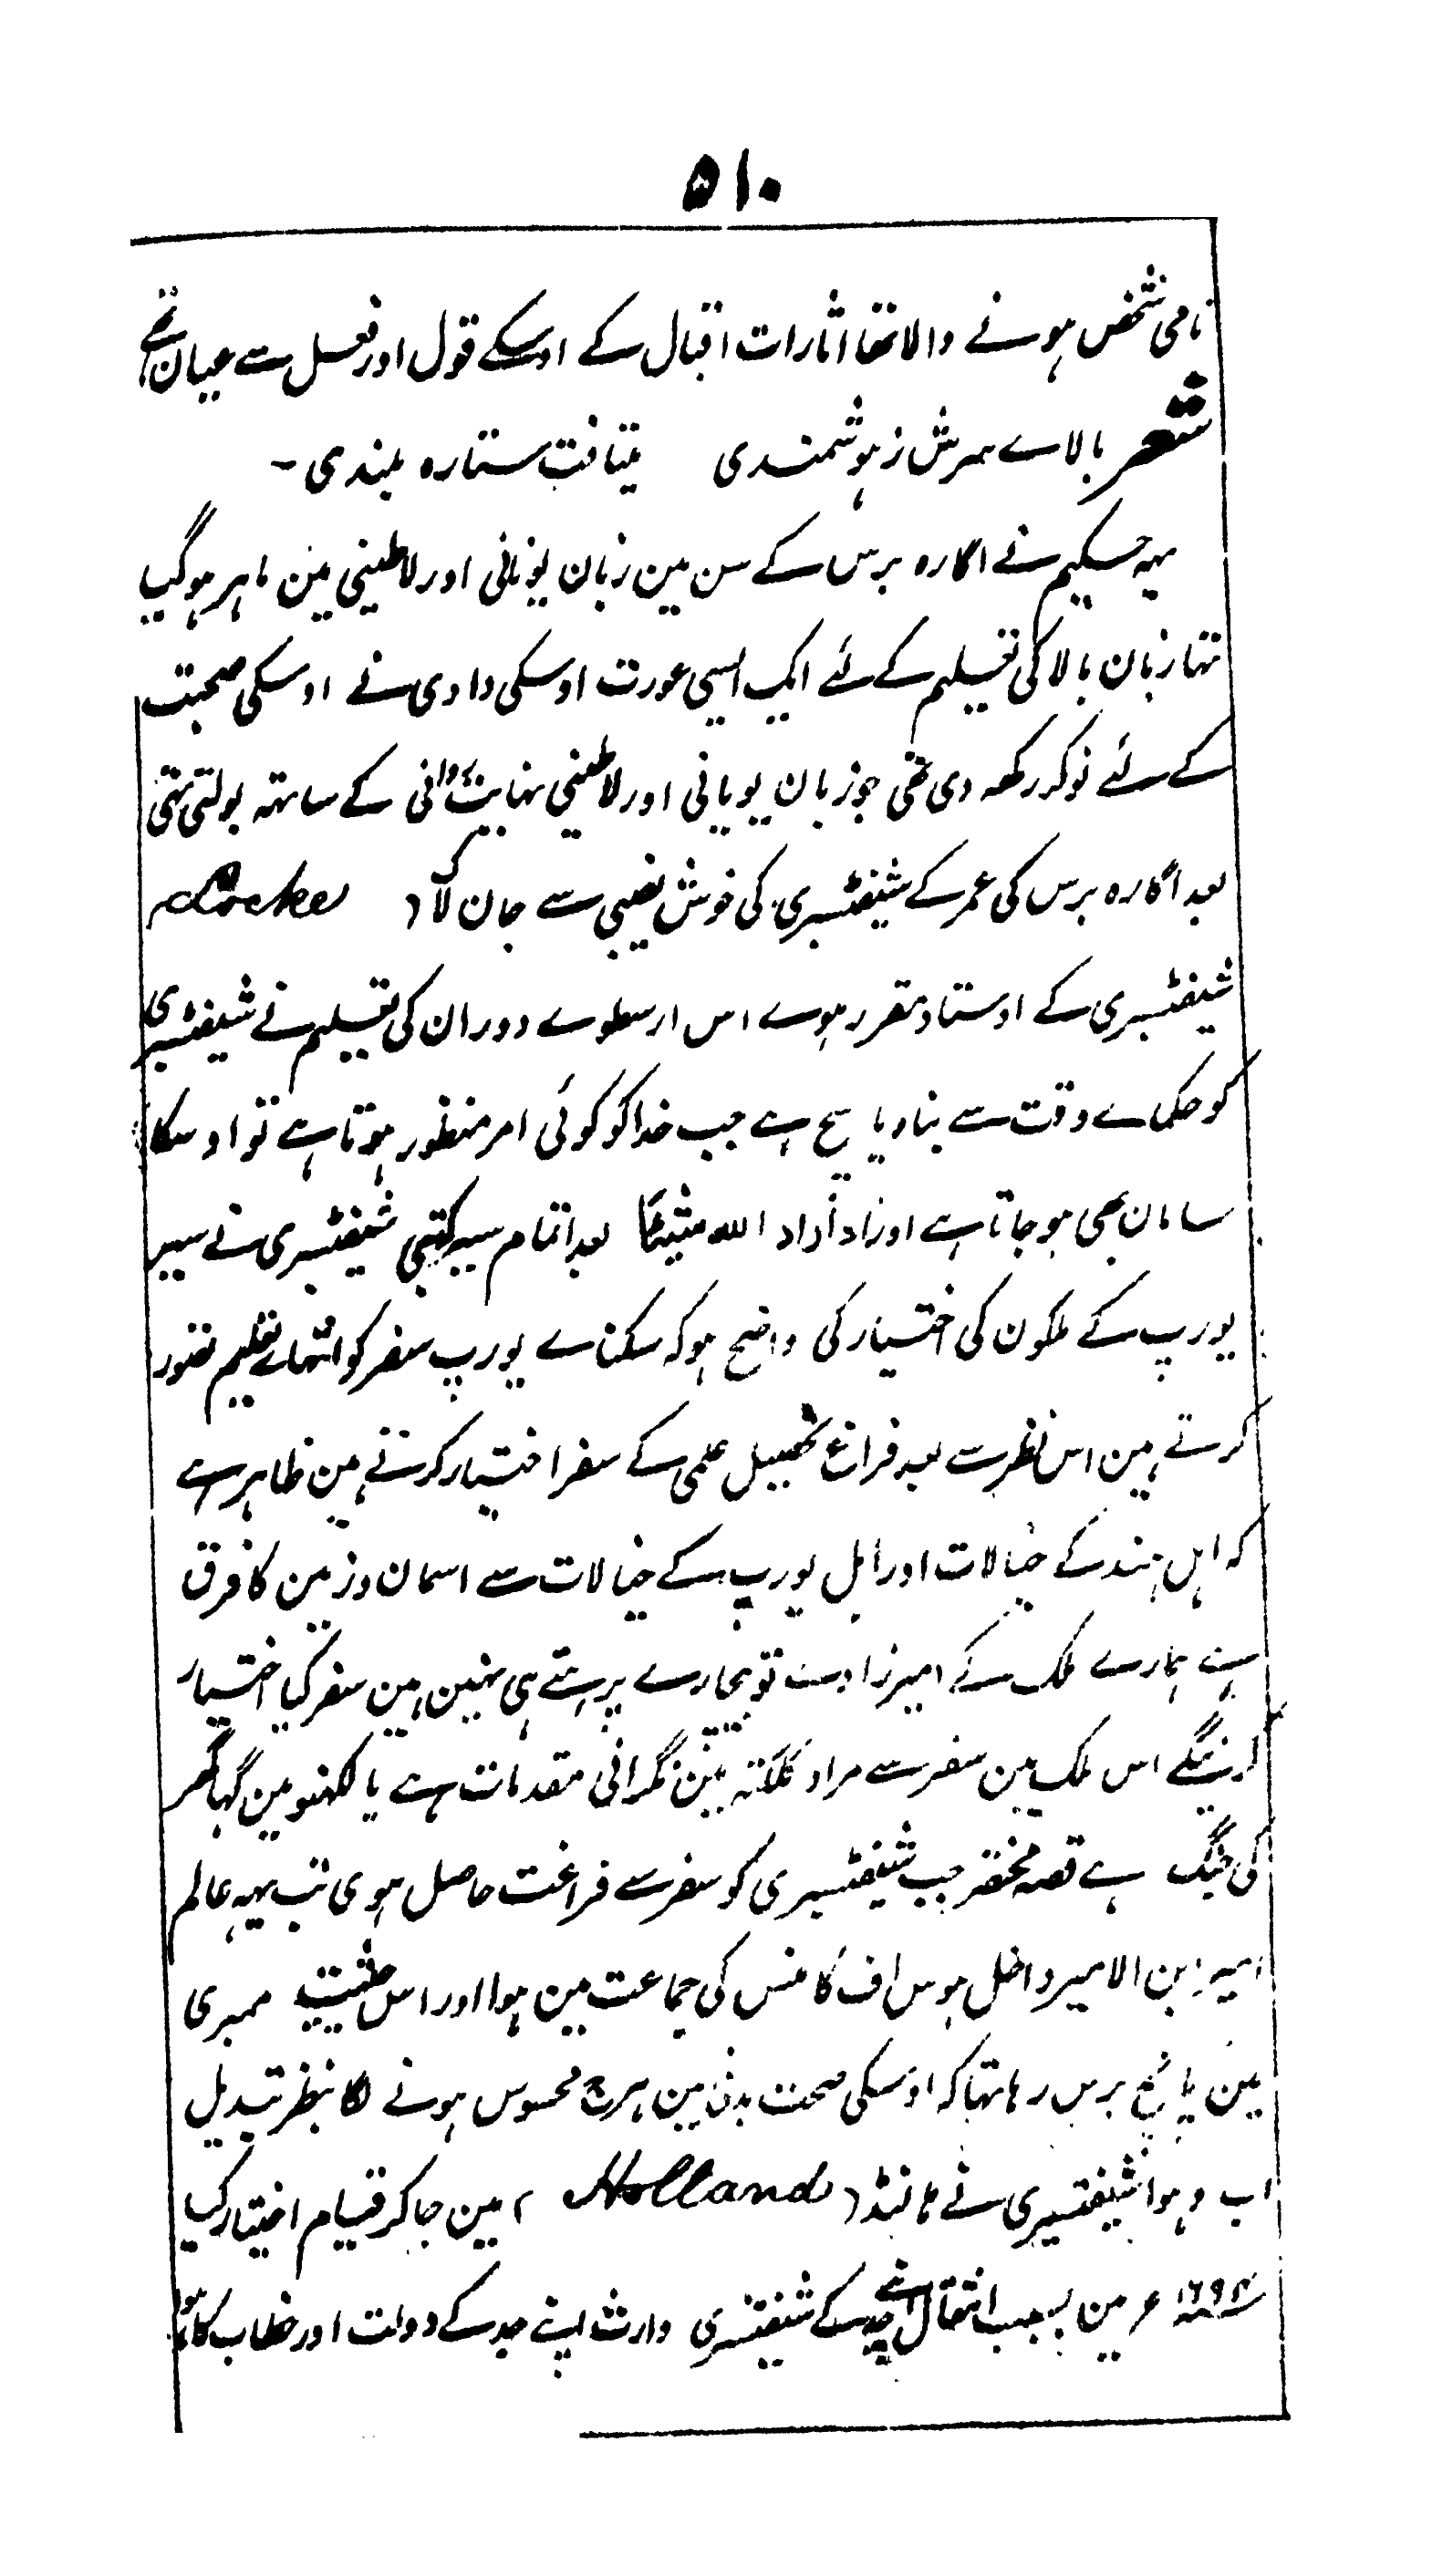 ۵۱۰
نامی شخص ہونے والا تھا اثارات اقبال کے اوسکے قول اور فعل سے عیان تھے
شعر بالاے سرش زہوشمندی میتافت ستارہ بلندی -
یہہ حکیم نے اگارہ برس کے سن مین زبان یونانی اور لاطینی مین ماہر ہو گیا
تہا زبان بالا کی تعلیم کے لئے ایک ایسی عورت اوسکی دادی نے اوسکی صحبت
کے لئے نوکر رکھہ دی تھی جو زبان یونانی اور لاطینی نہایت روانی کے ساتہہ بولتی تہی
بعد اگارہ برس کی عمر کے شیفٹسبری کی خوش نصیبی سے جان لاک ( Locke
شیفٹسبری کے اوستاد مقرر ہوے اس ارسطوے دوران کی تعلیم نے شیفٹسبری
کو حکماے وقت سے بنادیا سچ ہے جب خدا کو کوئی امر منظور ہوتا ہے تو اوسکا
سامان بھی ہو جاتا ہے اوزاد أراد اللہ شیئاً بعد اتمام سیر کتبی شیفٹسبری نے سیر
یورپ کے ملکون کی اختیار کی واضح ہو کہ سکناے یورپ سفر کو انتہاے تعلیم تصور
کرتے ہین اس نظر سے بعد فراغ تحصیل علمی کے سفر اختیار کرتے ہین ظاہر ہے
کہ اہل ہند کے خیالات اور اہل یورپ کے خیالات سے اسمان و زمین کا فرق
ہے ہمارے ملک کے امیرزادے تو بیچارے پڑہتے ہی نہین ہین سفر کیا اختیار
کرینگے اس ملک مین سفر سے مراد کلکتہ مین نگرانی مقدمات ہے یا لکہنو مین گہاگھر
کی جنگ ہے قصہ مختصر جب شیفٹسبری کو سفر سے فراغت حاصل ہوی تب یہہ عالم
امیر ابن الامیر داخل ہوس اف کامنس کی جماعت مین ہوا اور اس حیثیت ممبری
مین پانچ برس رہا تہا کہ اوسکی صحت بدنی مین ہرج محسوس ہونے لگا بنظر تبدیل
اب و ہوا شیفٹسبری نے ہالنڈ ( Holland ) مین جا کر قیام اختیار کیا
۱۶۹۴ء مین بسبب انتقال اپنے جد کے شیفٹسبری وارث اپنے جد کے دولت اور خطاب کا ہوا